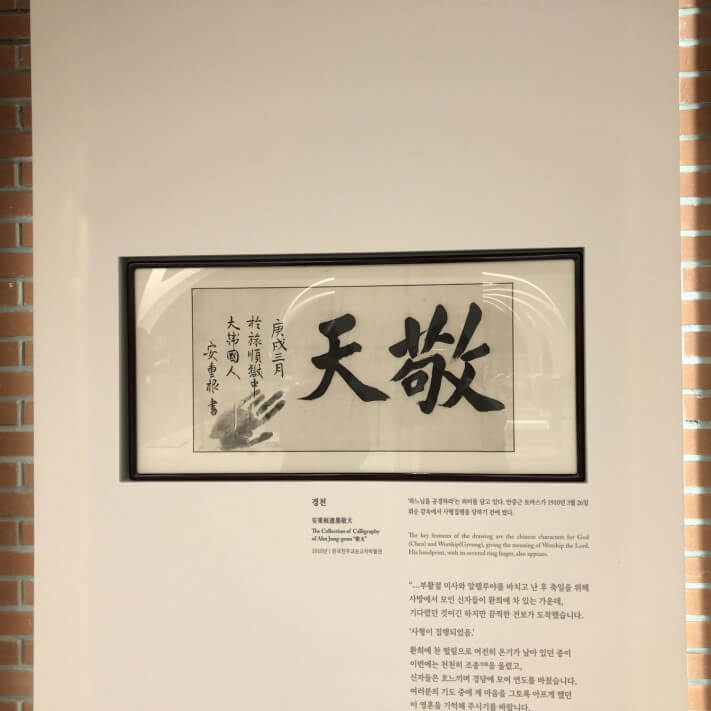 敬天
庚戌三月
於旅順獄中
大韓國人
安重根 書
경천
安重根遺墨敬天
The Collection of Calligraphy
of Ahn Jung-geun "敬天"
1910년 | 한국천주교순교자박물관
'하느님을 공경하라'는 의미를 담고 있다. 안중근 토마스가 1910년 3월 26일
뤼순 감옥에서 사형집행을 당하기 전에 썼다.
The key features of the drawing are the chinese characters for God
(Chen) and Worship(Gyeong), giving the meaning of Worship the Lord.
His handprint, with its severed ring finger, also appears.
"…부활절 미사와 알렐루야를 바치고 난 후 축일을 위해
사방에서 모인 신자들이 환희에 차 있는 가운데,
기다렸던 것이긴 하지만 끔찍한 전보가 도착했습니다.
'사형이 집행되었음.'
환희에 찬 떨림으로 여전히 온기가 남아 있던 종이
이번에는 천천히 조종을 울렸고,
신자들은 흐느끼며 경당에 모여 연도를 바쳤습니다.
여러분의 기도 중에 제 마음을 그토록 아프게 했던
이 영혼을 기억해 주시기를 바랍니다.